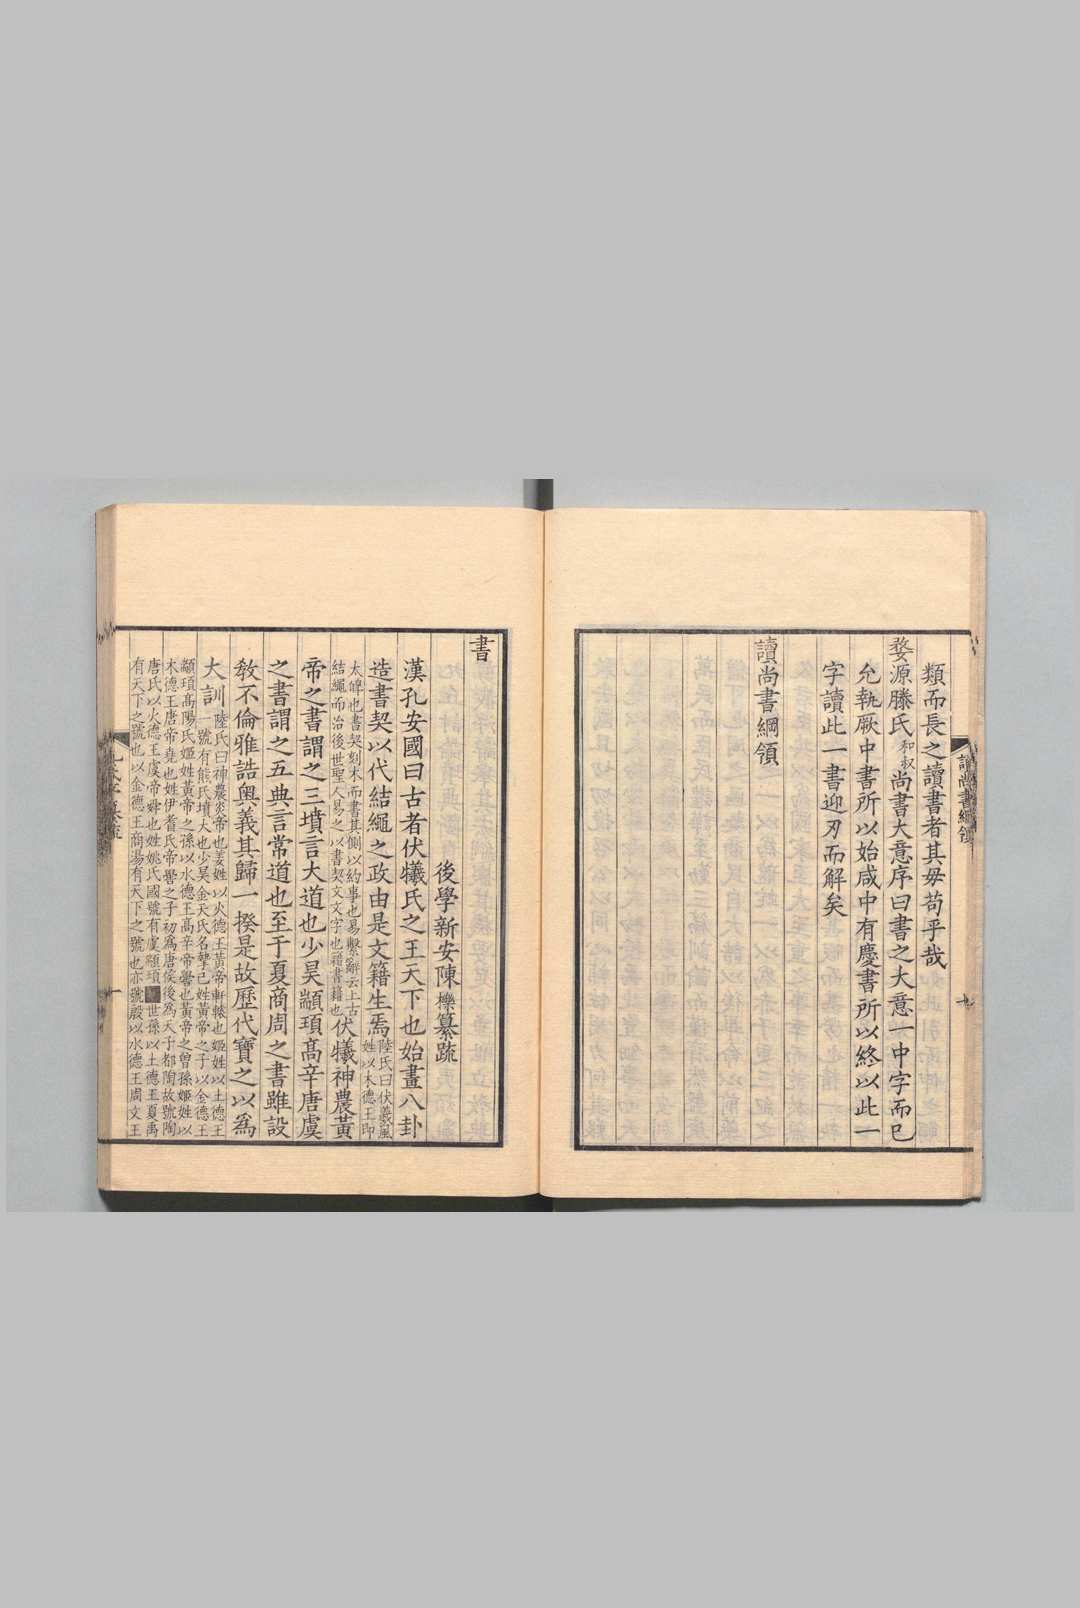 類而長之讀書者其毋苟乎哉
婺源滕氏和叔尚書大意序曰書之大意一中字而已
允執厥中書所以始咸中有慶書所以終以此一
字讀此一書迎刃而解矣
讀尚書綱領
讀尚書綱領
九
書
後學新安陳櫟纂疏
漢孔安國曰古者伏犧氏之王天下也始畫八卦
造書契以代結繩之政由是文籍生焉陸氏曰伏羲風
姓以木德王即
太皥也書契刻木而書其側以約事也易繫辭云上古
結繩而治後世聖人易之以書契文文字也籍書籍也伏犧神農黃
帝之書謂之三墳言大道也少昊顓頊高辛唐虞
之書謂之五典言常道也至于夏商周之書雖設
教不倫雅誥奧義其歸一揆是故歷代寶之以爲
大訓陸氏曰神農炎帝也姜姓以火德王黃帝軒轅也姬姓以土德王
一號有熊氏墳大也少昊金天氏名摯己姓黃帝之子以金德王
顓頊高陽氏姬姓黃帝之孫以水德王高辛帝嚳也黃帝之曾孫姬姓以
木德王唐帝堯也姓伊耆氏帝嚳之子初爲唐侯後為天子都陶故號陶
唐氏以火德王虞帝舜也姓姚氏國號有虞顓頊世孫以土德王夏禹
有天下之號也以金德王商湯有天下之號也亦號殷以水德王周文王
一